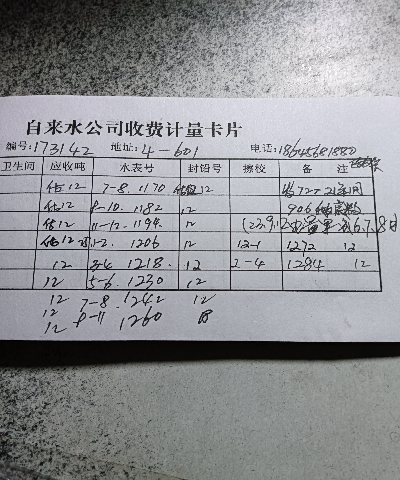 自来水公司收费计量卡片
编号:173142 地址:4-601 电话:18645681880
卫生间 应收吨 水表号 封铅号 擦校 备注
估12 7-8. 1170 12
估12 9-10. 1182 12 906
估12 11-12. 1194. 12
估12 1-2. 1206 12 12-1 1272 12
12 3-4 1218. 12 2-4 1284 12
12 5-6. 1230 12
12 7-8. 1242 12
12
12 9-11 1260